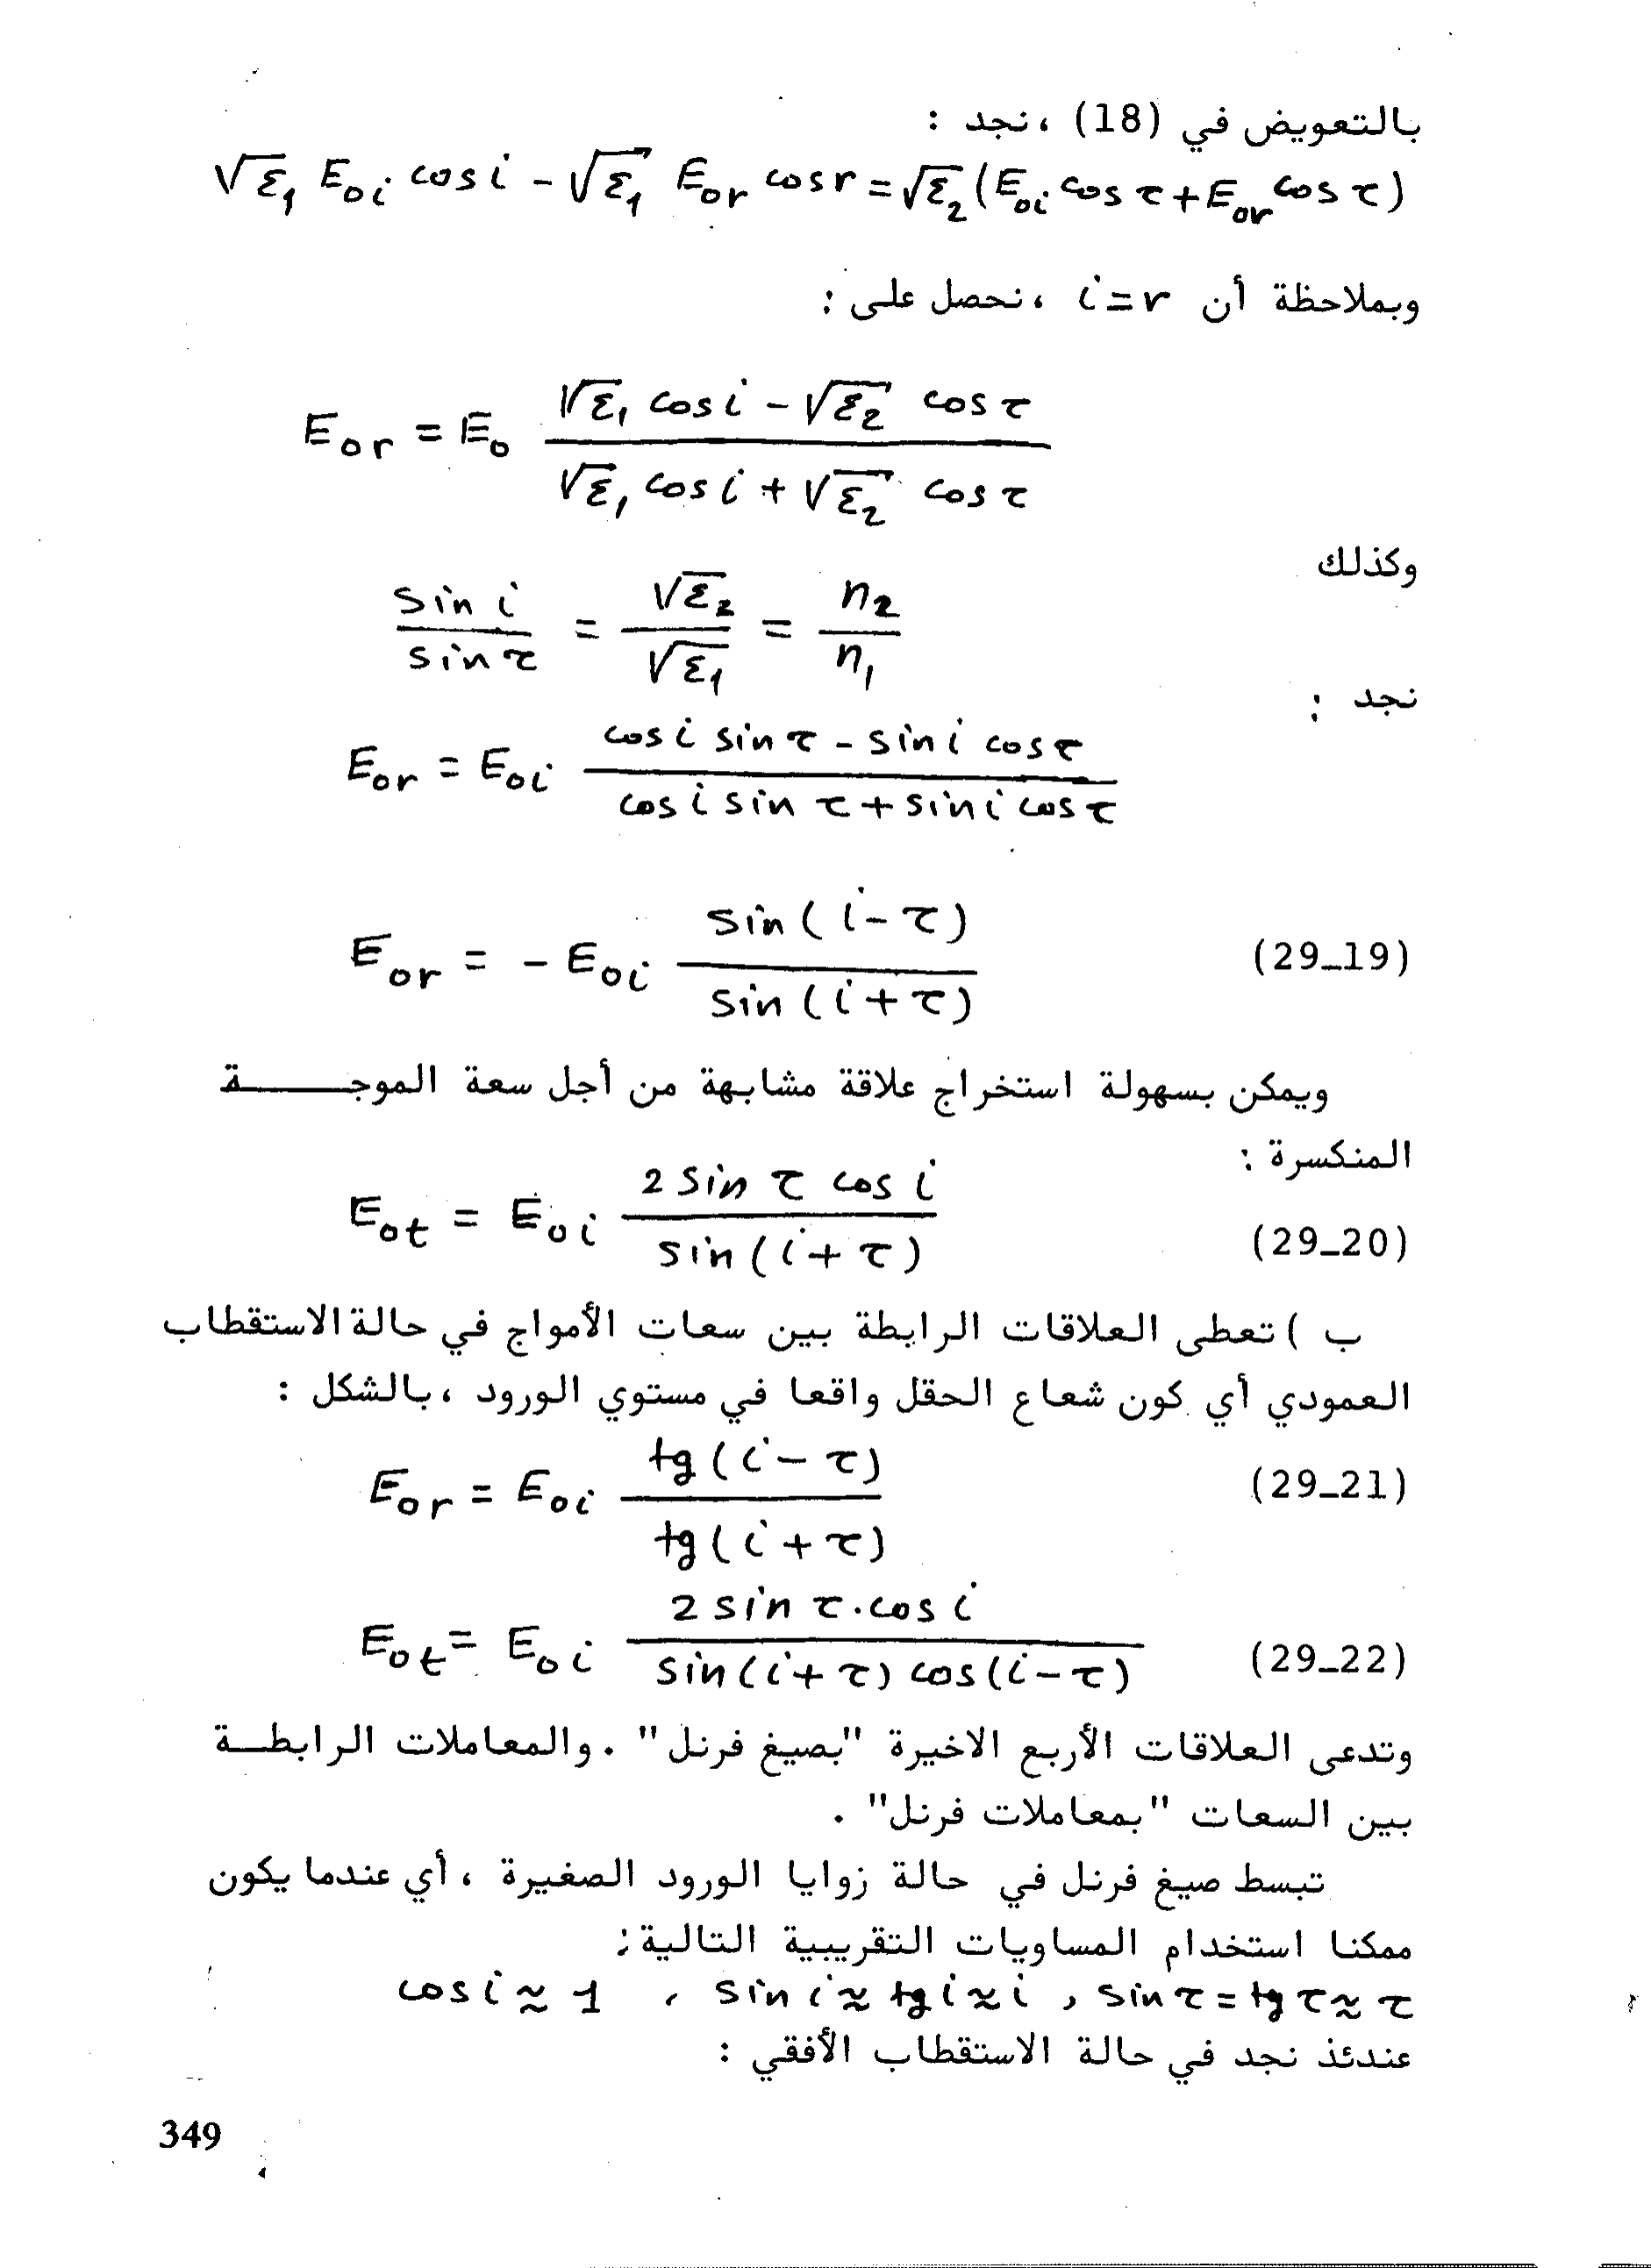 بالتعويض في (18) ، نجد :
√ε₁ E₀ᵢ cos i - √ε₁ E₀ᵣ cos r = √ε₂ (E₀ᵢ cos τ + E₀ᵣ cos τ)
وبملاحظة أن i = r ، نحصل على :
E₀ᵣ = E₀ (√ε₁ cos i - √ε₂ cos τ) / (√ε₁ cos i + √ε₂ cos τ)
وكذلك
sin i / sin τ = √ε₂ / √ε₁ = n₂ / n₁
نجد :
E₀ᵣ = E₀ᵢ (cos i sin τ - sin i cos τ) / (cos i sin τ + sin i cos τ)
E₀ᵣ = - E₀ᵢ sin (i - τ) / sin (i + τ) (29_19)
ويمكن بسهولة استخراج علاقة مشابهة من أجل سعة الموجة
المنكسرة :
E₀ₜ = E₀ᵢ 2 sin τ cos i / sin (i + τ) (29_20)
ب ) تعطى العلاقات الرابطة بين سعات الأمواج في حالة الاستقطاب
العمودي أي كون شعاع الحقل واقعا في مستوي الورود ، بالشكل :
E₀ᵣ = E₀ᵢ tg (i - τ) / tg (i + τ) (29_21)
E₀ₜ = E₀ᵢ 2 sin τ . cos i / sin (i + τ) cos (i - τ) (29_22)
وتدعى العلاقات الأربع الاخيرة "بصيغ فرنل" . والمعاملات الرابطة
بين السعات "بمعاملات فرنل" .
تبسط صيغ فرنل في حالة زوايا الورود الصغيرة ، أي عندما يكون
ممكنا استخدام المساويات التقريبية التالية :
cos i ≈ 1 , sin i ≈ tg i ≈ i , sin τ = tg τ ≈ τ
عندئذ نجد في حالة الاستقطاب الأفقي :
349